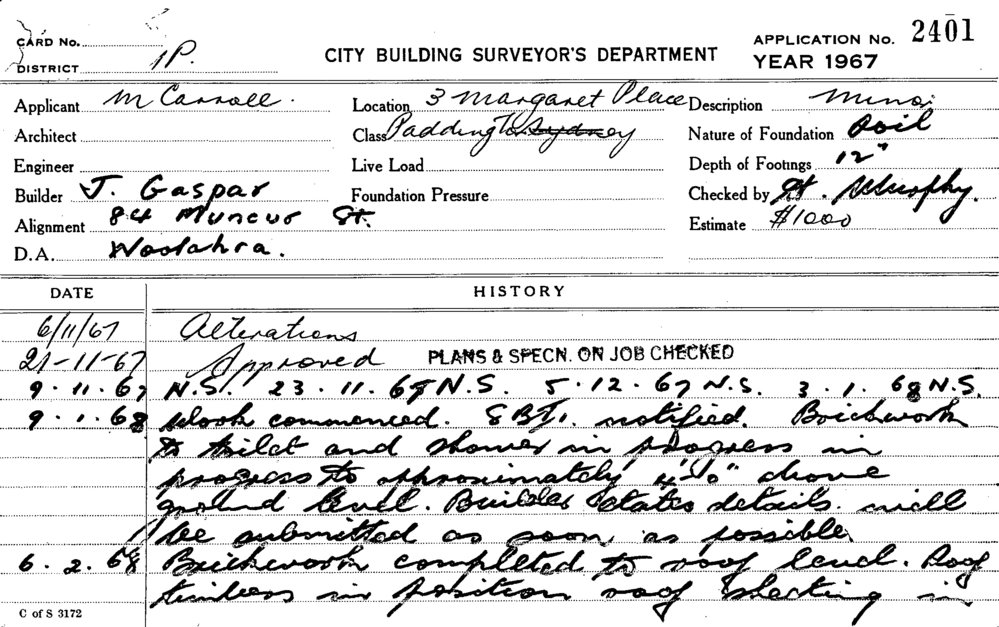 CARD No.
DISTRICT 1P.
CITY BUILDING SURVEYOR'S DEPARTMENT
APPLICATION No. 2401
YEAR 1967
Applicant M Carroll.
Location 3 Margaret Place
Description Minor
Architect
Class Paddington Sydney
Nature of Foundation Soil
Engineer
Live Load
Depth of Footings 12"
Builder J. Gaspar
Foundation Pressure
Checked by Murphy.
Alignment 84 St.
Estimate $1000
D.A. Woolahra.
DATE HISTORY
6/11/67 Alterations
21-11-67 Approved PLANS & SPECN. ON JOB CHECKED
9.11.67 N.S. 23.11.67 N.S. 5.12.67 N.S. 3.1.68 N.S.
9.1.68 Work commenced. notified. Brickwork
to toilet and shower in progress in
progress to approximately above
ground level. Builder states details will
be submitted as soon as possible
6.2.68 Brickwork completed to roof level. Roof
timbers in position roof sheeting in
C of S 3172